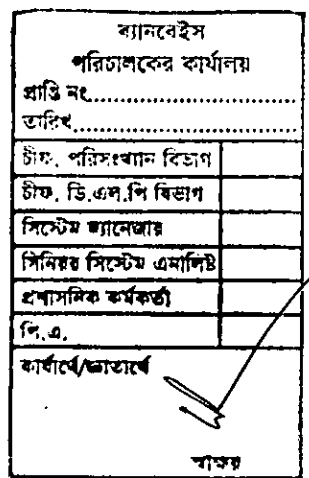 ব্যানবেইস
পরিচালকের কার্যালয়
প্রাপ্তি নং..............................
তারিখ..................................
চীফ, পরিসংখ্যান বিভাগ
চীফ, ডি.এল.পি বিভাগ
সিস্টেম ম্যানেজার
সিনিয়র সিস্টেম এনালিষ্ট
প্রশাসনিক কর্মকর্তা
পি.এ.
কার্যার্থে/জ্ঞাতার্থে
স্বাক্ষর